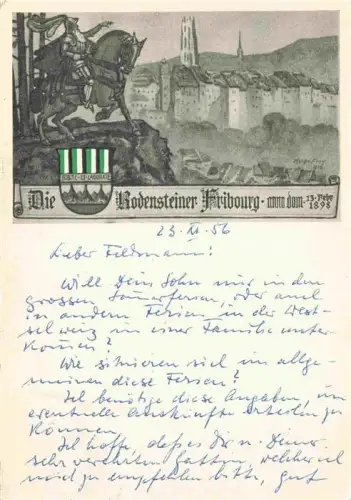 Die Rodensteiner Fribourg · anno dom · 13. Febr 1898
23. XI. 56
Lieber Feldmann:
Will Dein Sohn nur in den
grossen Sommerferien, oder auch
in andern Ferien in der West-
in einer Familie unter-
kommen?
Wie situieren sich im allge-
meinen diese Ferien?
Ich benötige diese Angaben, um
eventuelle Auskünfte erteilen zu
können.
Ich hoffe, dass es Dir u. Deiner
sehr verehrten Gattin, welcher ich
mich zu empfehlen bitte, gut